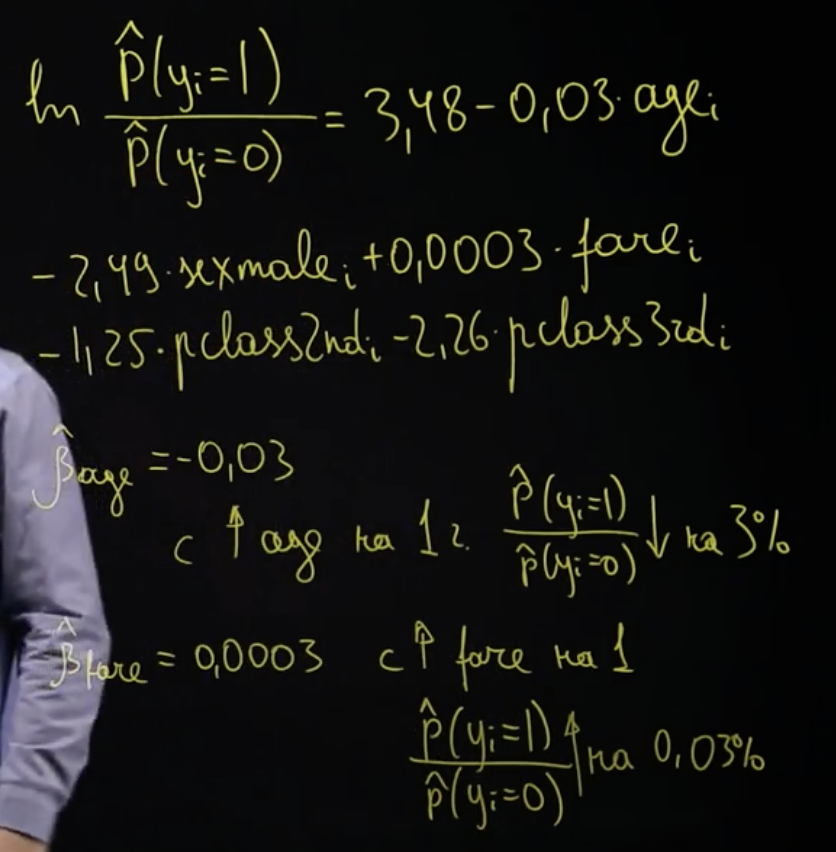 ln P̂(yᵢ=1)/P̂(yᵢ=0) = 3,48 - 0,03·ageᵢ
- 2,49·sexmaleᵢ + 0,0003·fareᵢ
- 1,25·pclass2ndᵢ - 2,26·pclass3rdᵢ
β̂age = -0,03
с ↑ age на 1 г. P̂(yᵢ=1)/P̂(yᵢ=0) ↓ на 3%
β̂fare = 0,0003 с ↑ fare на 1
P̂(yᵢ=1)/P̂(yᵢ=0) ↑ на 0,03%